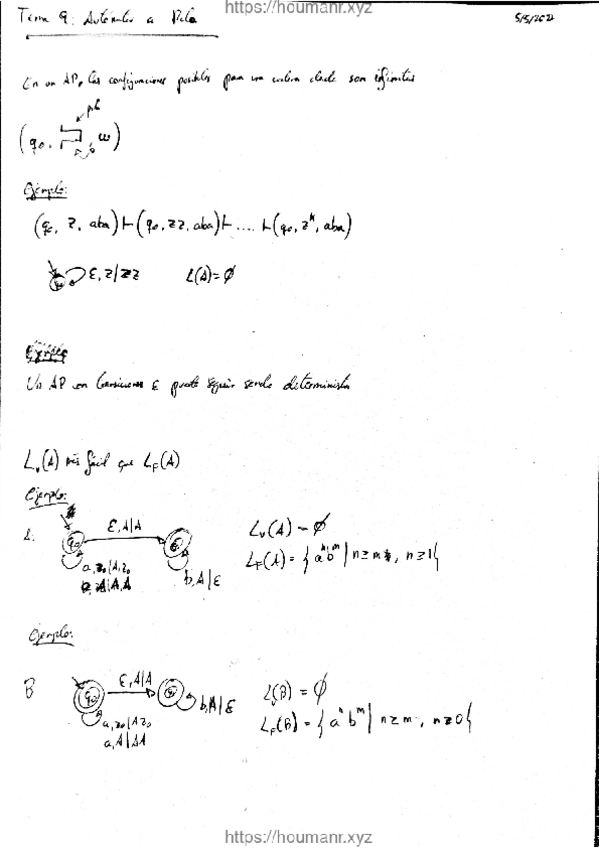 https://houmanr.xyz
Tema 9: Autómatas a Pila
5/5/2021
En un AP, las configuraciones posibles para una cadena dada son infinitas
pila
(q₀, , ω)
Ejemplo:
(q₀, z, aba) ⊢ (q₀, zz, aba) ⊢ .... ⊢ (q₀, zⁿ, aba)
ε, z/zz L(A)=∅
Un AP con transiciones ε puede seguir siendo determinista
Lᵥ(A) más fácil que L_F(A)
Ejemplo:
q₀ ε, A|A Lᵥ(A) = ∅
a, z₀|A, z₀ b, A|ε L_F(A) = { aⁿbᵐ | n≥m, n≥1}
Ejemplo:
B q₀ ε, A|A Lᵥ(B) = ∅
a, z₀|A z₀ b, A|ε L_F(B) = { aⁿ bᵐ | n≥m, n≥0}
a, A|AA
https://houmanr.xyz